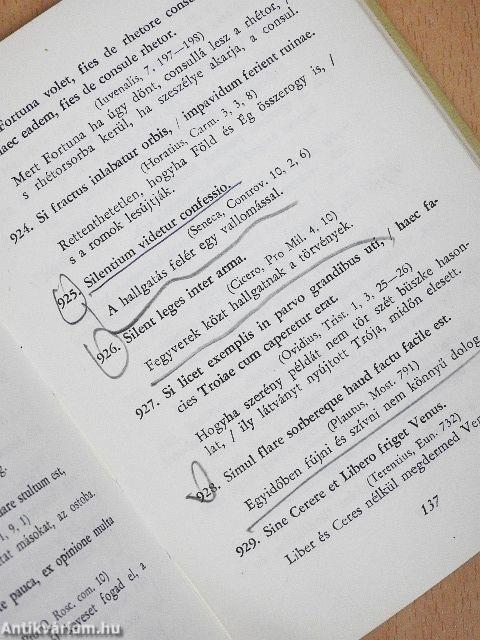 Fortuna volet, fies de rhetore
haec eadem, fies de consule rhetor.
(Iuvenalis, 7, 197—198)
Mert Fortuna ha úgy dönt, consullá lesz a rhétor, /
s rhétorsorba kerül, ha szeszélye akarja, a consul.
924. Si fractus inlabatur orbis, / impavidum ferient ruinae.
(Horatius, Carm. 3, 3, 8)
Rettenthetetlen, hogyha Föld és Ég összerogy is, /
s a romok lesújtják.
925. Silentium videtur confessio.
(Seneca, Controv. 10, 2, 6)
A hallgatás felér egy vallomással.
926. Silent leges inter arma.
(Cicero, Pro Mil. 4, 10)
Fegyverek közt hallgatnak a törvények.
927. Si licet exemplis in parvo grandibus uti, / haec fa-
cies Troiae cum caperetur erat.
(Ovidius, Trist. 1, 3, 25—26)
Hogyha szerény példát nem tör szét büszke hason-
lat, / ily látványt nyújtott Trója, midőn elesett.
928. Simul flare sorbereque haud factu facile est.
(Plautus, Most. 791)
Egyidőben fújni és szívni nem könnyű dolog
929. Sine Cerere et Libero friget Venus.
(Terentius, Eun. 732)
Liber és Ceres nélkül megdermed
137
are stultum est,
, 9, 1)
tat másokat, az ostoba.
te pauca, ex opinione multa
Rosc. com. 10)
fogad el, a
Antikvárium.hu